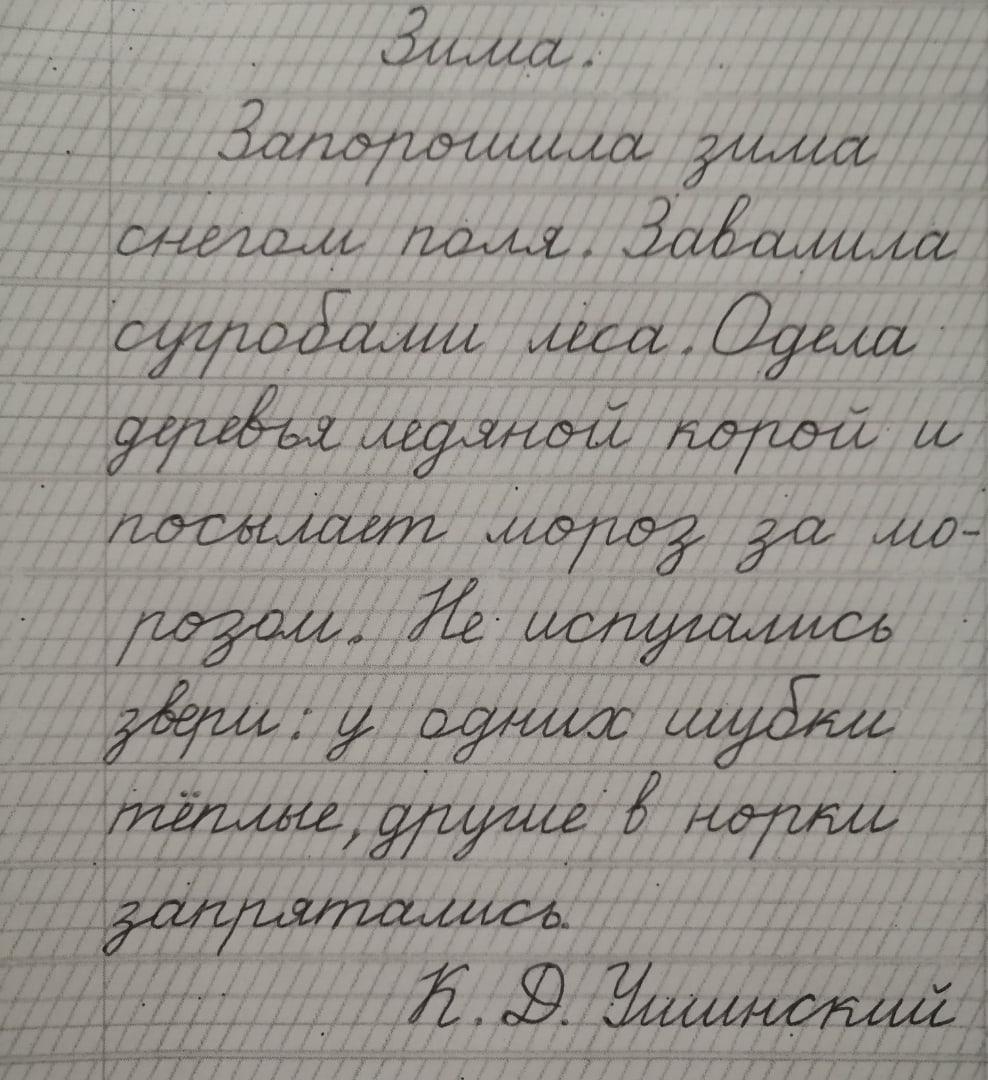 Зима.
Запорошила зима
снегом поля. Завалила
сугробами леса. Одела
деревья ледяной корой и
посылает мороз за мо-
розом. Не испугались
звери: у одних шубки
тёплые, другие в норки
запрятались.
К. Д. Ушинский